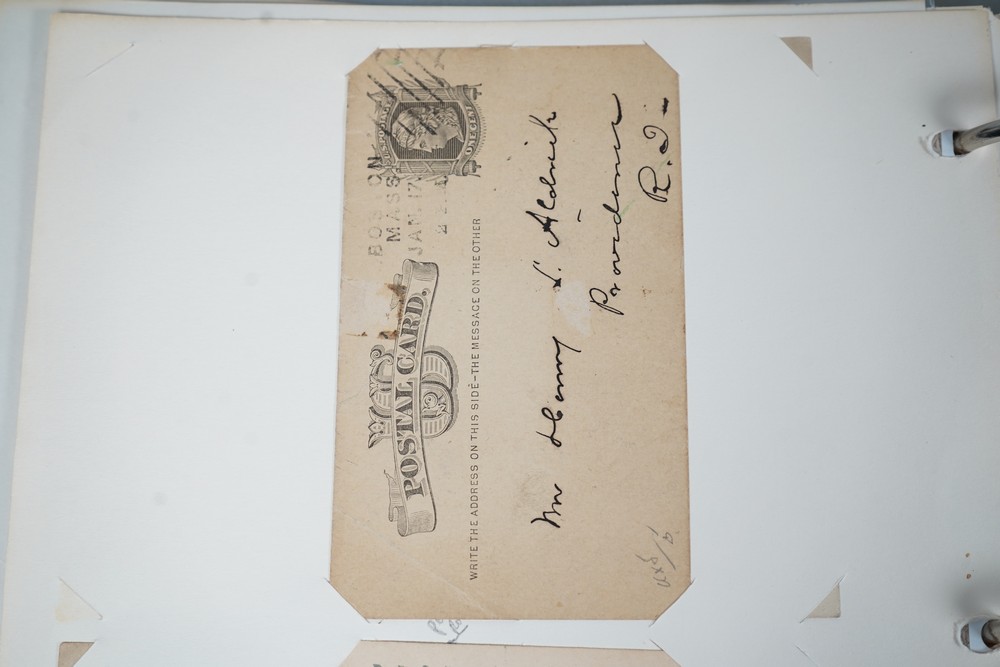 U.S. POSTAL CARD.
BOSTON
MASS
JAN. 17
2
ONE CENT
WRITE THE ADDRESS ON THIS SIDE-THE MESSAGE ON THE OTHER
Mr Henry L. Aldrich
Providence
R.I.